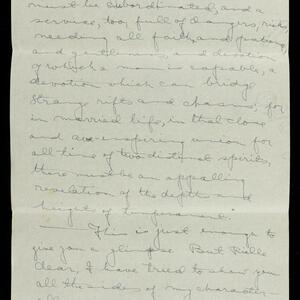 must be subordinated, and a
service, too, full of dangers, risks,
needing all faith, and patience,
and gentleness, and devotion
of which a man is capable, a
devotion which can bridge
strang rifts and chasms, for
in married life, in that close
and awe-inspiring union for
all time of two distinct spirits,
there must be an appalling
revelation of the depth and
height of temperament."
This is just enough to
give you a glimpse. But
dear, I have tried to show you
all the sides of my character